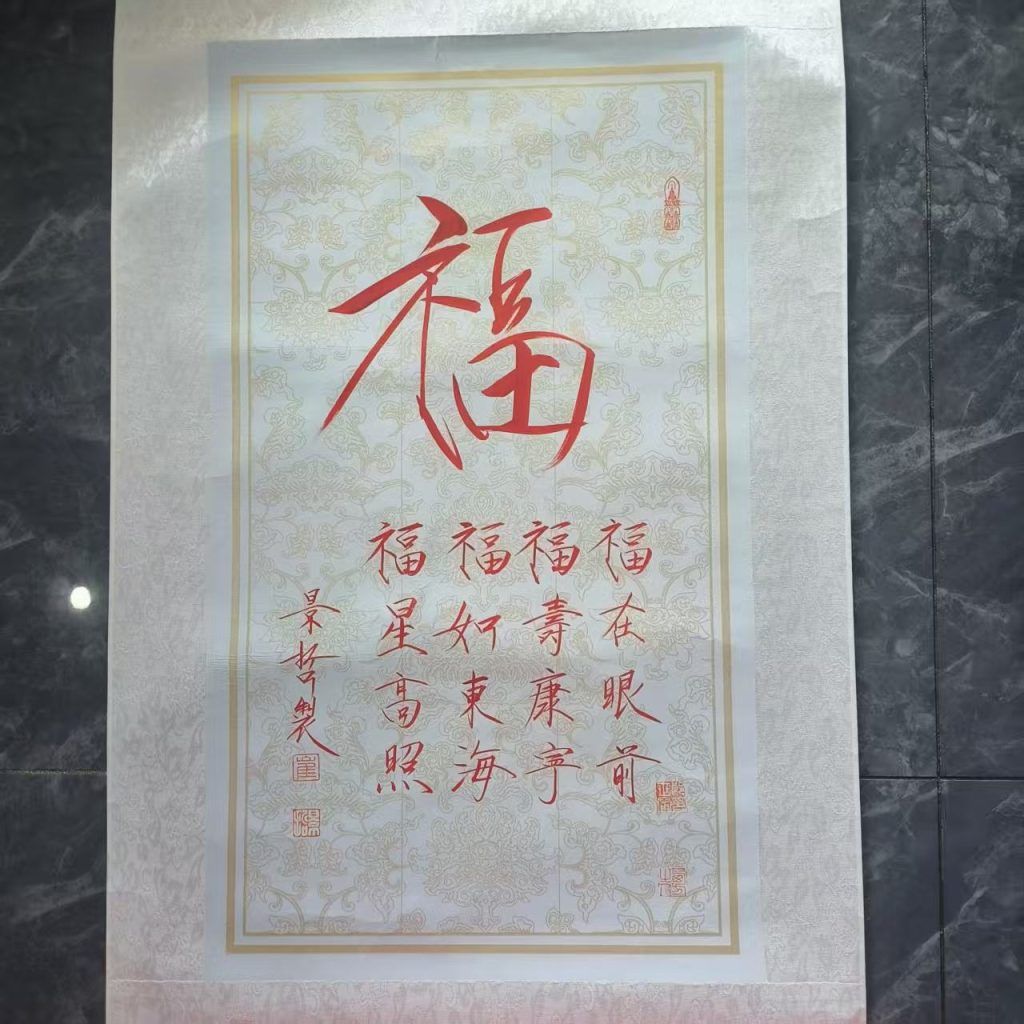 福
福在眼前
福壽康寧
福如東海
福星高照
景哲製
崔